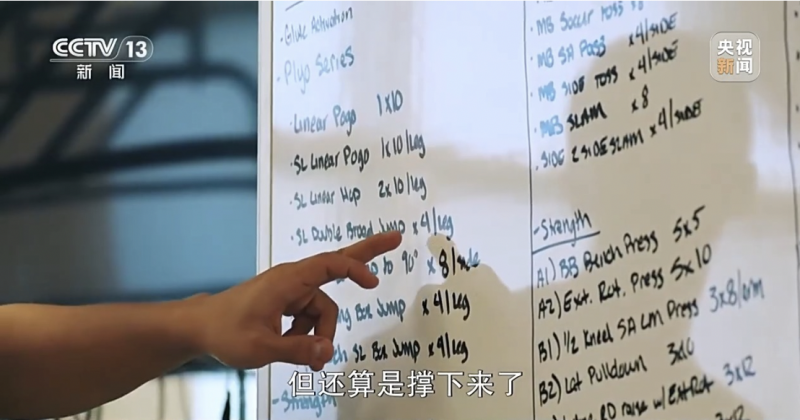 CCTV 13
新闻
央视
新闻
- Glute Activation
- Plyo Series
· Linear Pogo 1x10
· SL Linear Pogo 1x10/leg
· SL Linear Hop 2x10/leg
· SL Double Broad Jump x4/leg
to 90° x 8/side
Box Jump x4/leg
SL Box Jump x4/leg
- Strength
· MB
Toss x8
· MB SA
· MB SIDE TOSS x4/SIDE
· MB SLAM x8
· SIDE 2 SIDE SLAM x4/SIDE
- Strength
A1) BB Bench Press 5x5
A2) Ext. Rot. Press 5x10
B1) 1/2 Kneel SA LM Press 3x8/arm
B2) Lat Pulldown 3x10
raise w/
3x12
但还算是撑下来了